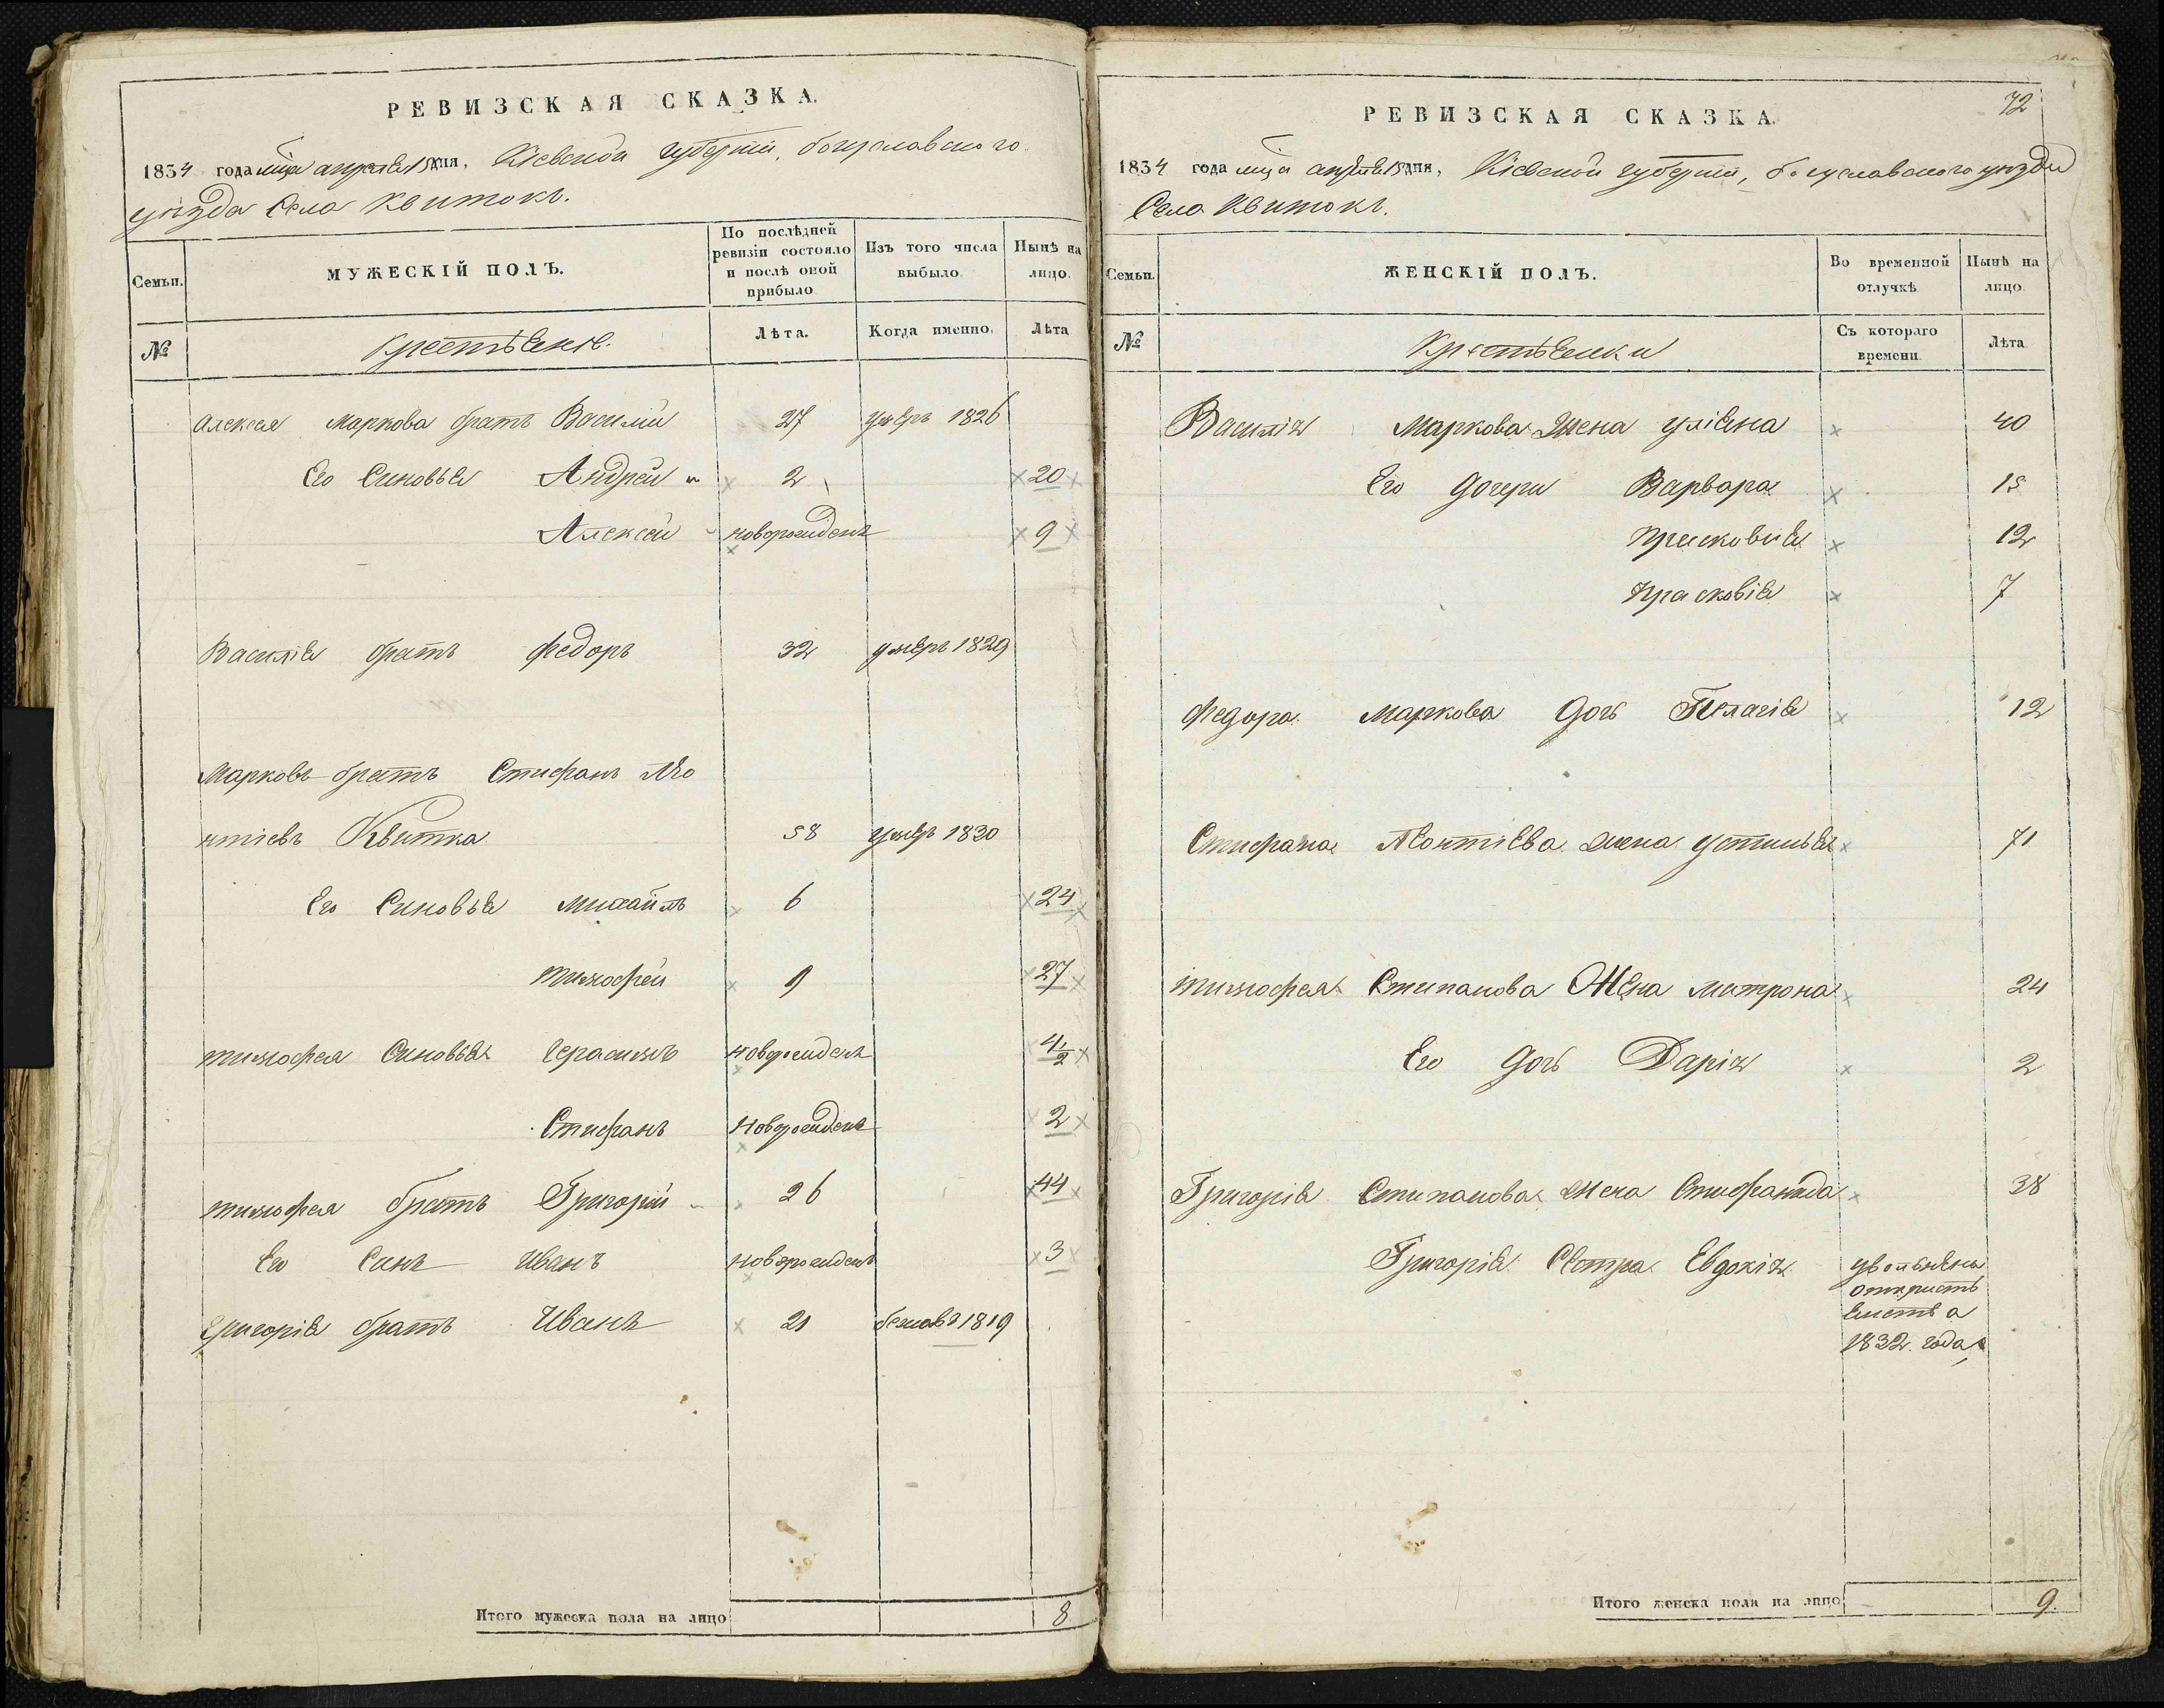 РЕВИЗСКАЯ СКАЗКА.
1834 года мца апреля 15 дня, Кіевской губерніи, богуславского
уезда Села Квитокъ.
Семьи. МУЖЕСКІЙ ПОЛЪ. По послѣдней ревизіи состояло и послѣ оной прибыло Изъ того числа выбыло. Нынѣ на лицо.
№ Крестьяне. Лѣта. Когда именно. Лѣта
Алексея Маркова братъ Василій 27 умеръ 1826
Его Синовья Андрей 2 20
Алексей новорожденъ 9
Василія братъ Федоръ 32 умеръ 1829
Марковъ братъ Стефанъ Лео
нтіевъ Квитка 58 умеръ 1830
Его Синовья михайлъ 6 24
тимофей 9 27
тимофея Синовья Герасимъ новорожденъ 4 1/2
Стефанъ Новорожденъ 2
тимофея братъ Григорій 26 44
Его Синъ иванъ новорожденъ 3
Григорія братъ Иванъ 21 бежавъ 1819
Итого мужеска пола на лицо 8
72
РЕВИЗСКАЯ СКАЗКА.
1834 года мца апреля 15 дня, Кіевской губерніи, богуславского уезда
Села Квитокъ.
Семьи. ЖЕНСКІЙ ПОЛЪ. Во временной отлучкѣ Нынѣ на лицо.
№ Крестьянки Съ котораго времени. Лѣта
Василія Маркова Жена уліяна 40
Его дочери Варвара 15
Прасковия 12
Прасковія 7
Федора Маркова дочь Пелагія 12
Стефана Леонтіева жена устинья 71
тимофея Степанова Жена матрона 24
Его дочь Дарія 2
Григорія Степанова Жена Стефанида 38
Григорія Сестра Евдокія уволнена
откристь
янства
1832 года
Итого женска пола на лицо 9.